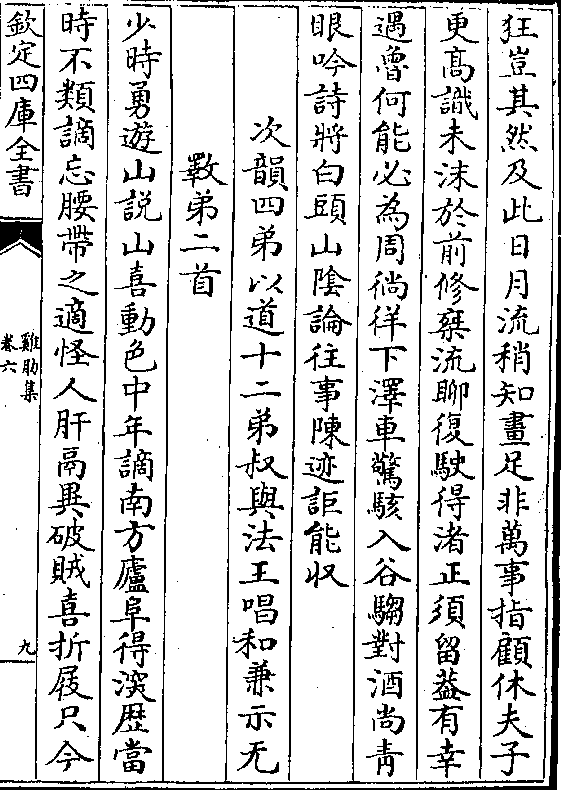 狂豈其然及此日月流稍知畫足非萬事指顧休夫子
更髙識未沫於前修棄流聊復駛得渚正須留葢有幸
遇魯何能必為周徜徉下澤車驚駭入谷騶對酒尚青
眼吟詩將白頭山隂論往事陳迹詎能収
次韻四弟以道十二弟叔與法王唱和兼示无
斁弟二首
少時勇遊山説山喜動色中年謫南方廬阜得深歴當
時不類謫忘腰帶之適怪人肝鬲異破賊喜折屐只今
欽定四庫全書
雞肋集
卷六
九